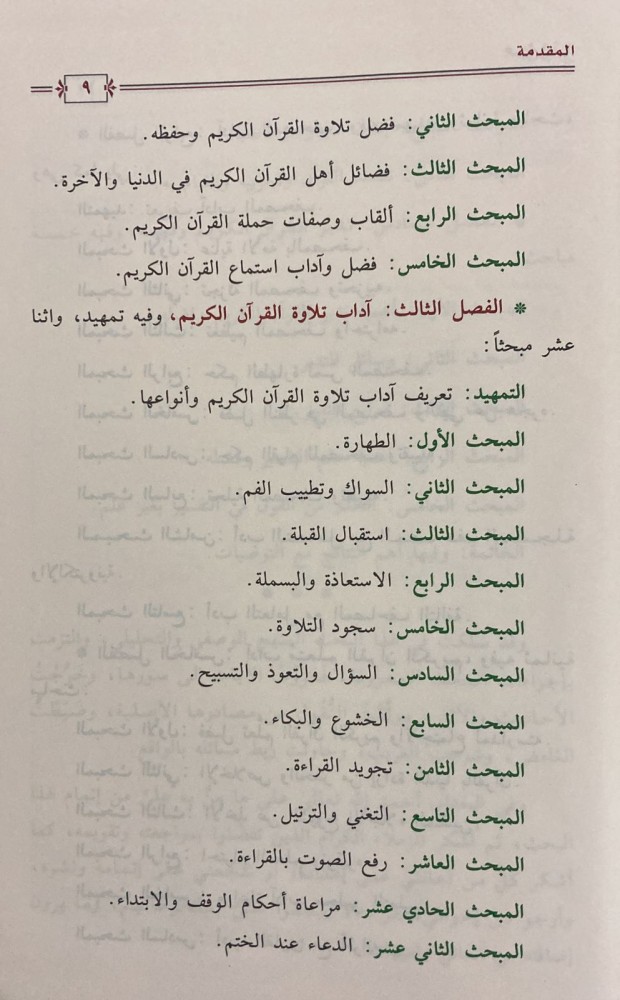 المقدمة
٩
المبحث الثاني: فضل تلاوة القرآن الكريم وحفظه.
المبحث الثالث: فضائل أهل القرآن الكريم في الدنيا والآخرة.
المبحث الرابع: ألقاب وصفات حملة القرآن الكريم.
المبحث الخامس: فضل وآداب استماع القرآن الكريم.
* الفصل الثالث: آداب تلاوة القرآن الكريم، وفيه تمهيد، واثنا
عشر مبحثاً:
التمهيد: تعريف آداب تلاوة القرآن الكريم وأنواعها.
المبحث الأول: الطهارة.
المبحث الثاني: السواك وتطييب الفم.
المبحث الثالث: استقبال القبلة.
المبحث الرابع: الاستعاذة والبسملة.
المبحث الخامس: سجود التلاوة.
المبحث السادس: السؤال والتعوذ والتسبيح.
المبحث السابع: الخشوع والبكاء.
المبحث الثامن: تجويد القراءة.
المبحث التاسع: التغني والترتيل.
المبحث العاشر: رفع الصوت بالقراءة.
المبحث الحادي عشر: مراعاة أحكام الوقف والابتداء.
المبحث الثاني عشر: الدعاء عند الختم.